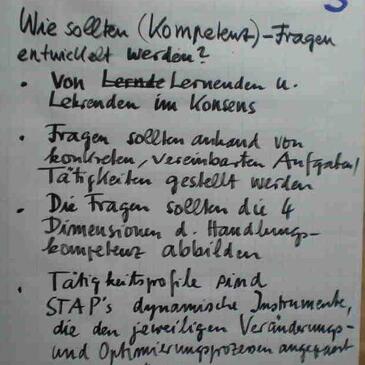 Wie sollten (Kompetenz)-Fragen
entwickelt werden?
• Von Lernde Lernenden u.
Lehrenden im Konsens
• Fragen sollten anhand von
konkreten, vereinbarten Aufgaben/
Tätigkeiten gestellt werden
• Die Fragen sollten die 4
Dimensionen d. Handlungs-
kompetenz abbilden
• Tätigkeitsprofile sind
STAP's dynamische Instrumente,
die den jeweiligen Veränderungs-
und Optimierungsprozessen angepasst